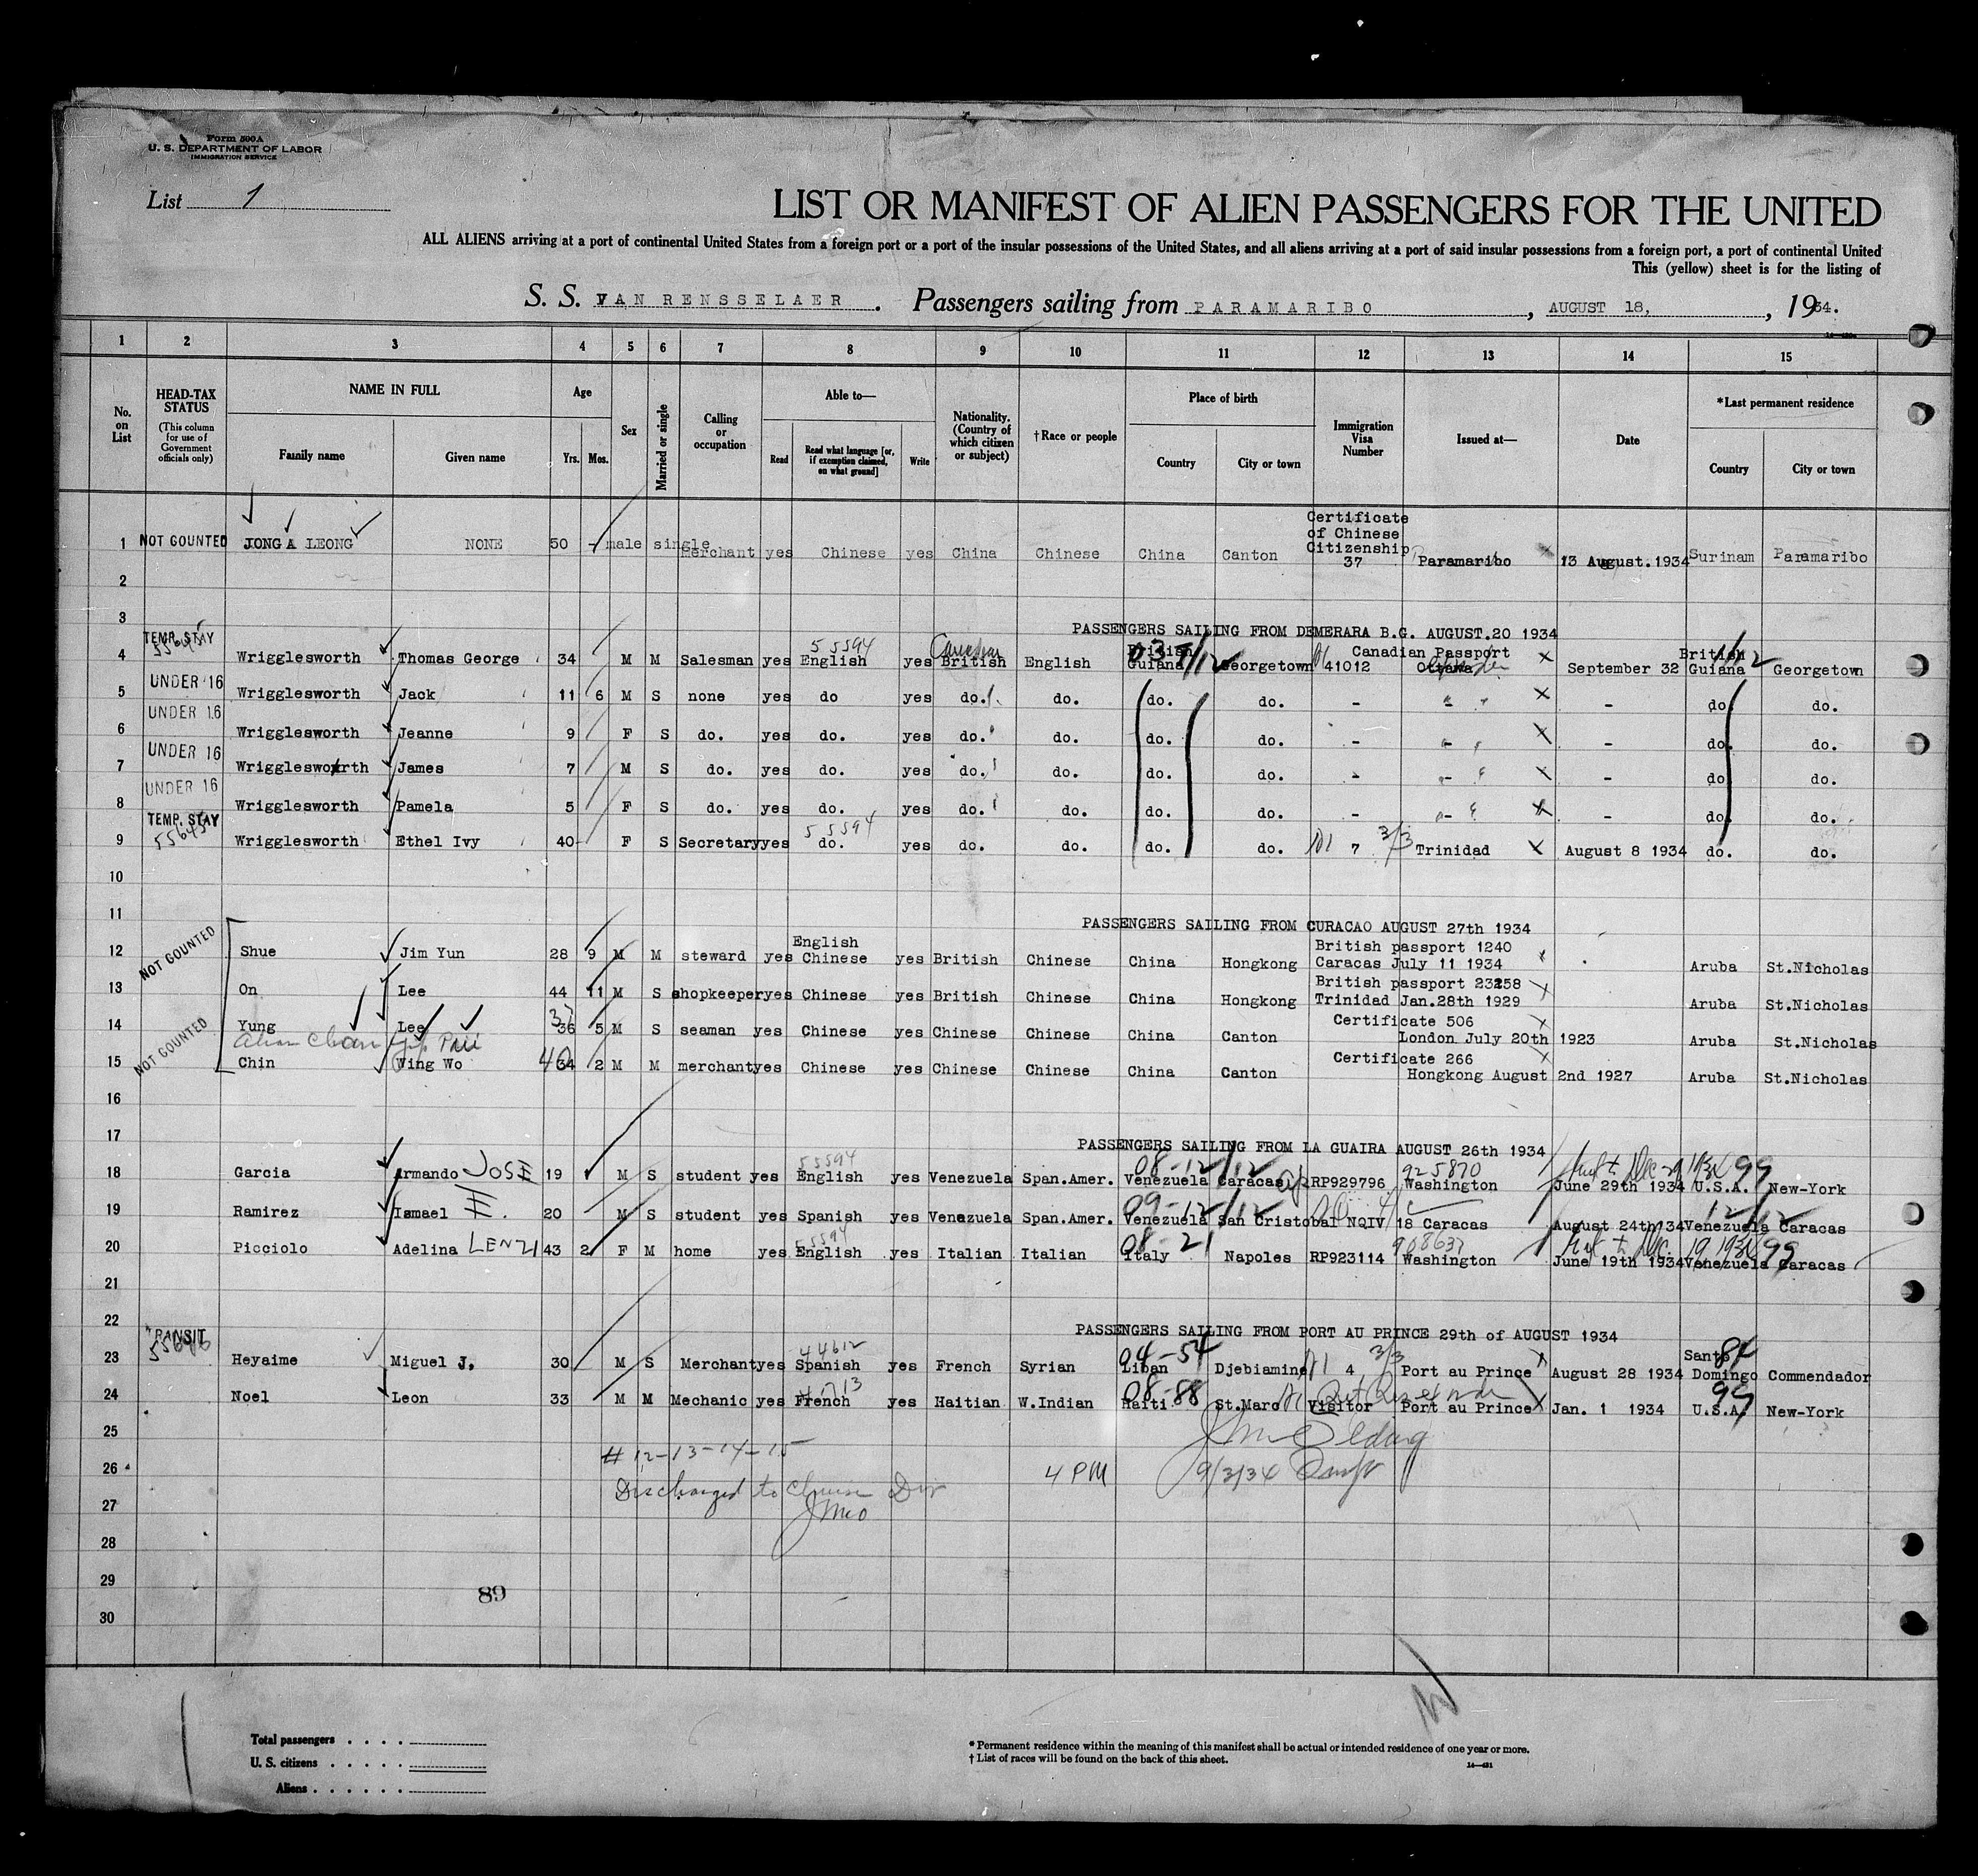 Form 500A
U. S. DEPARTMENT OF LABOR
IMMIGRATION SERVICE
List 1
LIST OR MANIFEST OF ALIEN PASSENGERS FOR THE UNITED
ALL ALIENS arriving at a port of continental United States from a foreign port or a port of the insular possessions of the United States, and all aliens arriving at a port of said insular possessions from a foreign port, a port of continental United
This (yellow) sheet is for the listing of
S. S. VAN RENSSELAER. Passengers sailing from PARAMARIBO, AUGUST 18, , 1934.
1 2 3 4 5 6 7 8 9 10 11 12 13 14 15
No. on List
HEAD-TAX STATUS (This column for use of Government officials only)
NAME IN FULL
Family name Given name
Age
Yrs. Mos.
Sex
Married or single
Calling or occupation
Able to—
Read Read what language [or, if exemption claimed, on what ground] Write
Nationality. (Country of which citizen or subject)
†Race or people
Place of birth
Country City or town
Immigration Visa Number
Issued at—
Date
*Last permanent residence
Country City or town
1 NOT COUNTED JONG A LEONG NONE 50 - male single Merchant yes Chinese yes China Chinese China Canton Certificate of Chinese Citizenship 37 Paramaribo 13 August.1934 Surinam Paramaribo
2
3
PASSENGERS SAILING FROM DEMERARA B.G. AUGUST.20 1934
4 TEMP. STAY 55645 Wrigglesworth Thomas George 34 M M Salesman yes 55594 English yes Canadian British English British Guiana Georgetown 41012 Canadian Passport Ottawa September 32 British Guiana Georgetown
5 UNDER 16 Wrigglesworth Jack 11 6 M S none yes do yes do. do. do. do. - - - do. do.
6 UNDER 16 Wrigglesworth Jeanne 9 F S do. yes do. yes do. do. do. do. - - - do. do.
7 UNDER 16 Wrigglesworth James 7 M S do. yes do. yes do. do. do. do. - - - do. do.
8 UNDER 16 Wrigglesworth Pamela 5 F S do. yes do. yes do. do. do. do. - - - do. do.
9 TEMP. STAY 55645 Wrigglesworth Ethel Ivy 40 F S Secretary yes 55594 do. yes do. do. do. do. 7 3/3 Trinidad August 8 1934 do. do.
10
11
PASSENGERS SAILING FROM CURACAO AUGUST 27th 1934
12 NOT COUNTED Shue Jim Yun 28 9 M M steward yes English Chinese yes British Chinese China Hongkong British passport 1240 Caracas July 11 1934 Aruba St.Nicholas
13 On Lee 44 11 M S shopkeeper yes Chinese yes British Chinese China Hongkong British passport 23258 Trinidad Jan.28th 1929 Aruba St.Nicholas
14 NOT COUNTED Yung Lee 37 36 5 M S seaman yes Chinese yes Chinese Chinese China Canton Certificate 506 London July 20th 1923 Aruba St.Nicholas
15 Chin Wing Wo 40 34 2 M M merchant yes Chinese yes Chinese Chinese China Canton Certificate 266 Hongkong August 2nd 1927 Aruba St.Nicholas
16
17
PASSENGERS SAILING FROM LA GUAIRA AUGUST 26th 1934
18 Garcia Armando JOSE 19 1 M S student yes 55594 English yes Venezuela Span.Amer. 08-12/12 Venezuela Caracas RP929796 925870 Washington June 29th 1934 99 U.S.A. New-York
19 Ramirez Ismael E. 20 M S student yes Spanish yes Venezuela Span.Amer. 09-12/12 Venezuela San Cristobal NQIV 18 Caracas August 24th 34 12/12 Venezuela Caracas
20 Picciolo Adelina LENZI 43 2 F M home yes 55594 English yes Italian Italian 08-21 Italy Napoles RP923114 908637 Washington June 19th 1934 99 Venezuela Caracas
21
22
PASSENGERS SAILING FROM PORT AU PRINCE 29th of AUGUST 1934
23 TRANSIT 55646 Heyaime Miguel J. 30 M S Merchant yes 44612 Spanish yes French Syrian 04-54 Liban Djebiamine 4 3/3 Port au Prince August 28 1934 Santo Domingo 84 Commendador
24 Noel Leon 33 M M Mechanic yes French yes Haitian W.Indian 08-88 Haiti St.Marc Visitor Port au Prince Jan. 1 1934 99 U.S.A. New-York
25
# 12-13-14-15
26
4 PM 9/3/34
Discharged to Chinese Div
27
JMcO
28
29
89
30
Total passengers
U. S. citizens
Aliens
* Permanent residence within the meaning of this manifest shall be actual or intended residence of one year or more.
† List of races will be found on the back of this sheet.
14—431